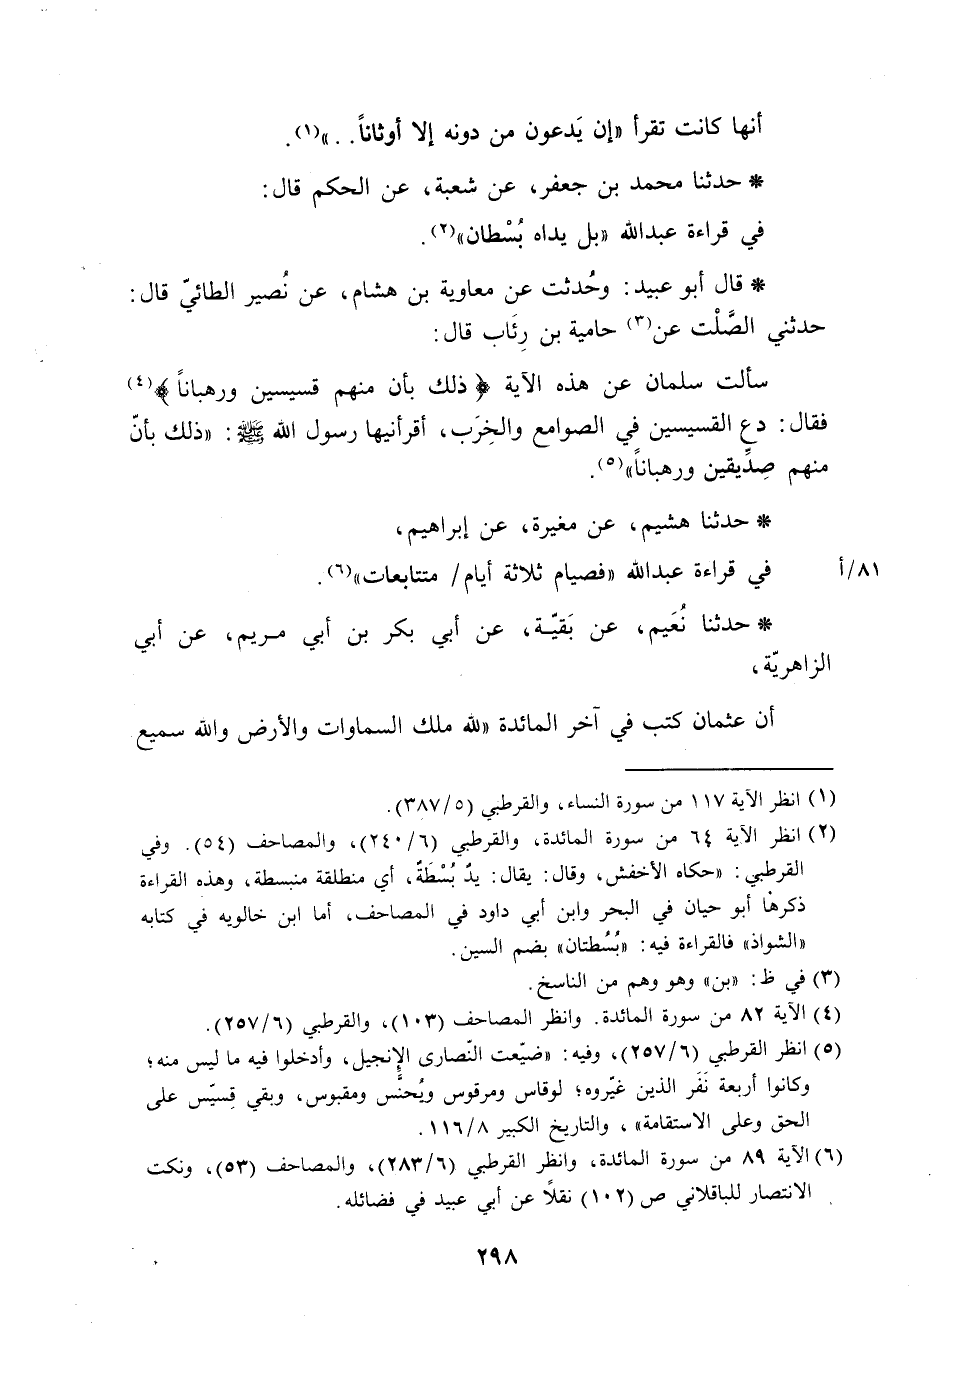 أنها كانت تقرأ «إن يَدعون من دونه إلا أوثاناً. .»(١).
* حدثنا محمد بن جعفر، عن شعبة، عن الحكم قال:
في قراءة عبدالله «بل يداه بُسْطان»(٢).
* قال أبو عبيد: وحُدثت عن معاوية بن هشام، عن نُصير الطائيّ قال:
حدثني الصَّلْت عن(٣) حامية بن رِئَاب قال:
سألت سلمان عن هذه الآية ﴿ ذلك بأن منهم قسيسين ورهباناً ﴾(٤)
فقال: دع القسيسين في الصوامع والخِرَب، أقرأنيها رسول الله ﷺ: «ذلك بأنّ
منهم صِدِّيقين ورهباناً»(٥).
* حدثنا هشيم، عن مغيرة، عن إبراهيم،
في قراءة عبدالله «فصيام ثلاثة أيام/ متتابعات»(٦).
٨١/أ
* حدثنا نُعَيم، عن بَقيّة، عن أبي بكر بن أبي مريم، عن أبي
الزاهريّة،
أن عثمان كتب في آخر المائدة «لله ملك السماوات والأرض والله سميع
(١) انظر الآية ١١٧ من سورة النساء، والقرطبي (٥/٣٨٧).
(٢) انظر الآية ٦٤ من سورة المائدة، والقرطبي (٦/٢٤٠)، والمصاحف (٥٤). وفي
القرطبي: «حكاه الأخفش، وقال: يقال: يدٌ بُسْطَةٌ، أي منطلقة منبسطة، وهذه القراءة
ذكرها أبو حيان في البحر وابن أبي داود في المصاحف، أما ابن خالويه في كتابه
«الشواذ» فالقراءة فيه: «بُسُطتان» بضم السين.
(٣) في ظ: «بن» وهو وهم من الناسخ.
(٤) الآية ٨٢ من سورة المائدة. وانظر المصاحف (١٠٣)، والقرطبي (٦/٢٥٧).
(٥) انظر القرطبي (٦/٢٥٧)، وفيه: «ضيّعت النّصارى الإنجيل، وأدخلوا فيه ما ليس منه؛
وكانوا أربعة نَفَر الذين غيّروه؛ لوقاس ومرقوس ويُحنَّس ومقبوس، وبقي قِسيّس على
الحق وعلى الاستقامة»، والتاريخ الكبير ٨/١١٦.
(٦) الآية ٨٩ من سورة المائدة، وانظر القرطبي (٦/٢٨٣)، والمصاحف (٥٣)، ونكت
الانتصار للباقلاني ص (١٠٢) نقلاً عن أبي عبيد في فضائله.
٢٩٨